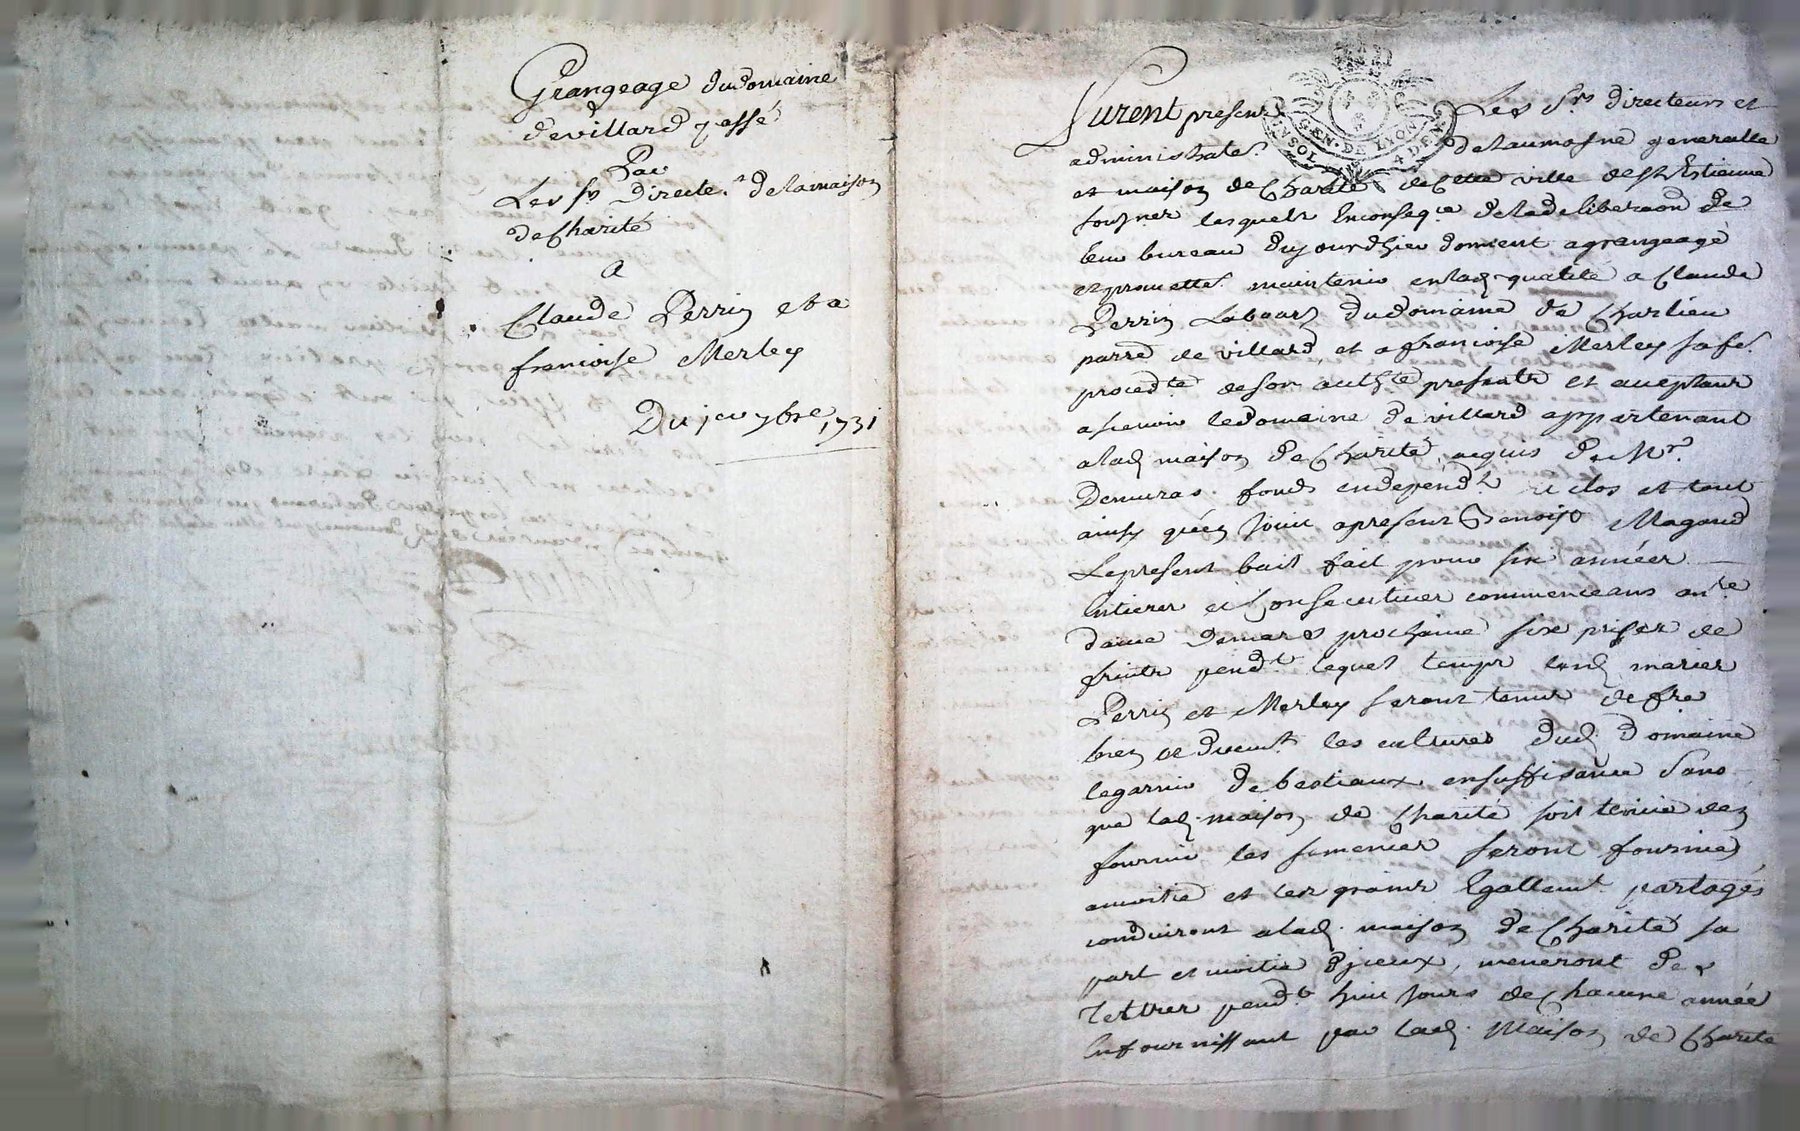 Grangeage du domaine
de villard passé
Par
Les Srs Directrs de la maison
de Charité
A
Claude Perrin et a
francoise Merley
Du jer 7bre 1731
GEN. DE LYON
SOL 4 DEN
Furent presents Les Srs directeurs et
administrates de laumosne generalle
et maison de Charité de Cette ville de St Estienne
lesquels En conseqce de la deliberaon de
leur bureau du jourdhier donnent a grangeage
et promettet maintenir en lad qualité a Claude
Perrin Labour du domaine de Charlieu
parre de villard et a francoise Merley sa fe
procedte de son authte presents et acceptans
ascavoir le domaine de villard appartenant
a lad maison de Charité acquis de Mr
Demuras fonds en dependt et clos et tout
ainsy quen jouit a present Benoist Magand
Le present bail fait pour six années
Entieres et Consecutives commenceans a nre
dame de mars prochaine six prises de
fruits pendt lequel temps lesd mariés
Perrin et Merley seront tenus de fre
bien et duemt les cultures dud. Domaine
le garnir de bestiaux en suffisance sans
que lad. maison de Charité soit tenue den
fournir les semences seront fournies
a moitié et les grains Egallemt partagés
conduiront a lad. maison de Charité sa
part et moitié diceux, meneront des
lettres pendt huit jours de Chacune année
En fournissant par lad. Maison de Charité